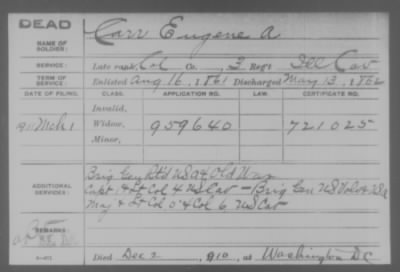 DEAD
NAME OF SOLDIER: Carr Eugene A
SERVICE: Late rank, Col Co. , 3 Reg't Ill Cav
TERM OF SERVICE: Enlisted Aug 16, 1861 Discharged May 13, 1862
DATE OF FILING. CLASS. APPLICATION NO. LAW. CERTIFICATE NO.
Invalid,
1911 Mch 1 Widow, 959640 721025
Minor,
ADDITIONAL SERVICES: Brig Gen Rtd USA & Old War
Capt 1 & Lt Col 4 US Cav - Brig Gen US Vols & USA
Maj & Lt Col 5 & Col 6 US Cav
REMARKS:
Died Dec 2, 1910, at Washington DC